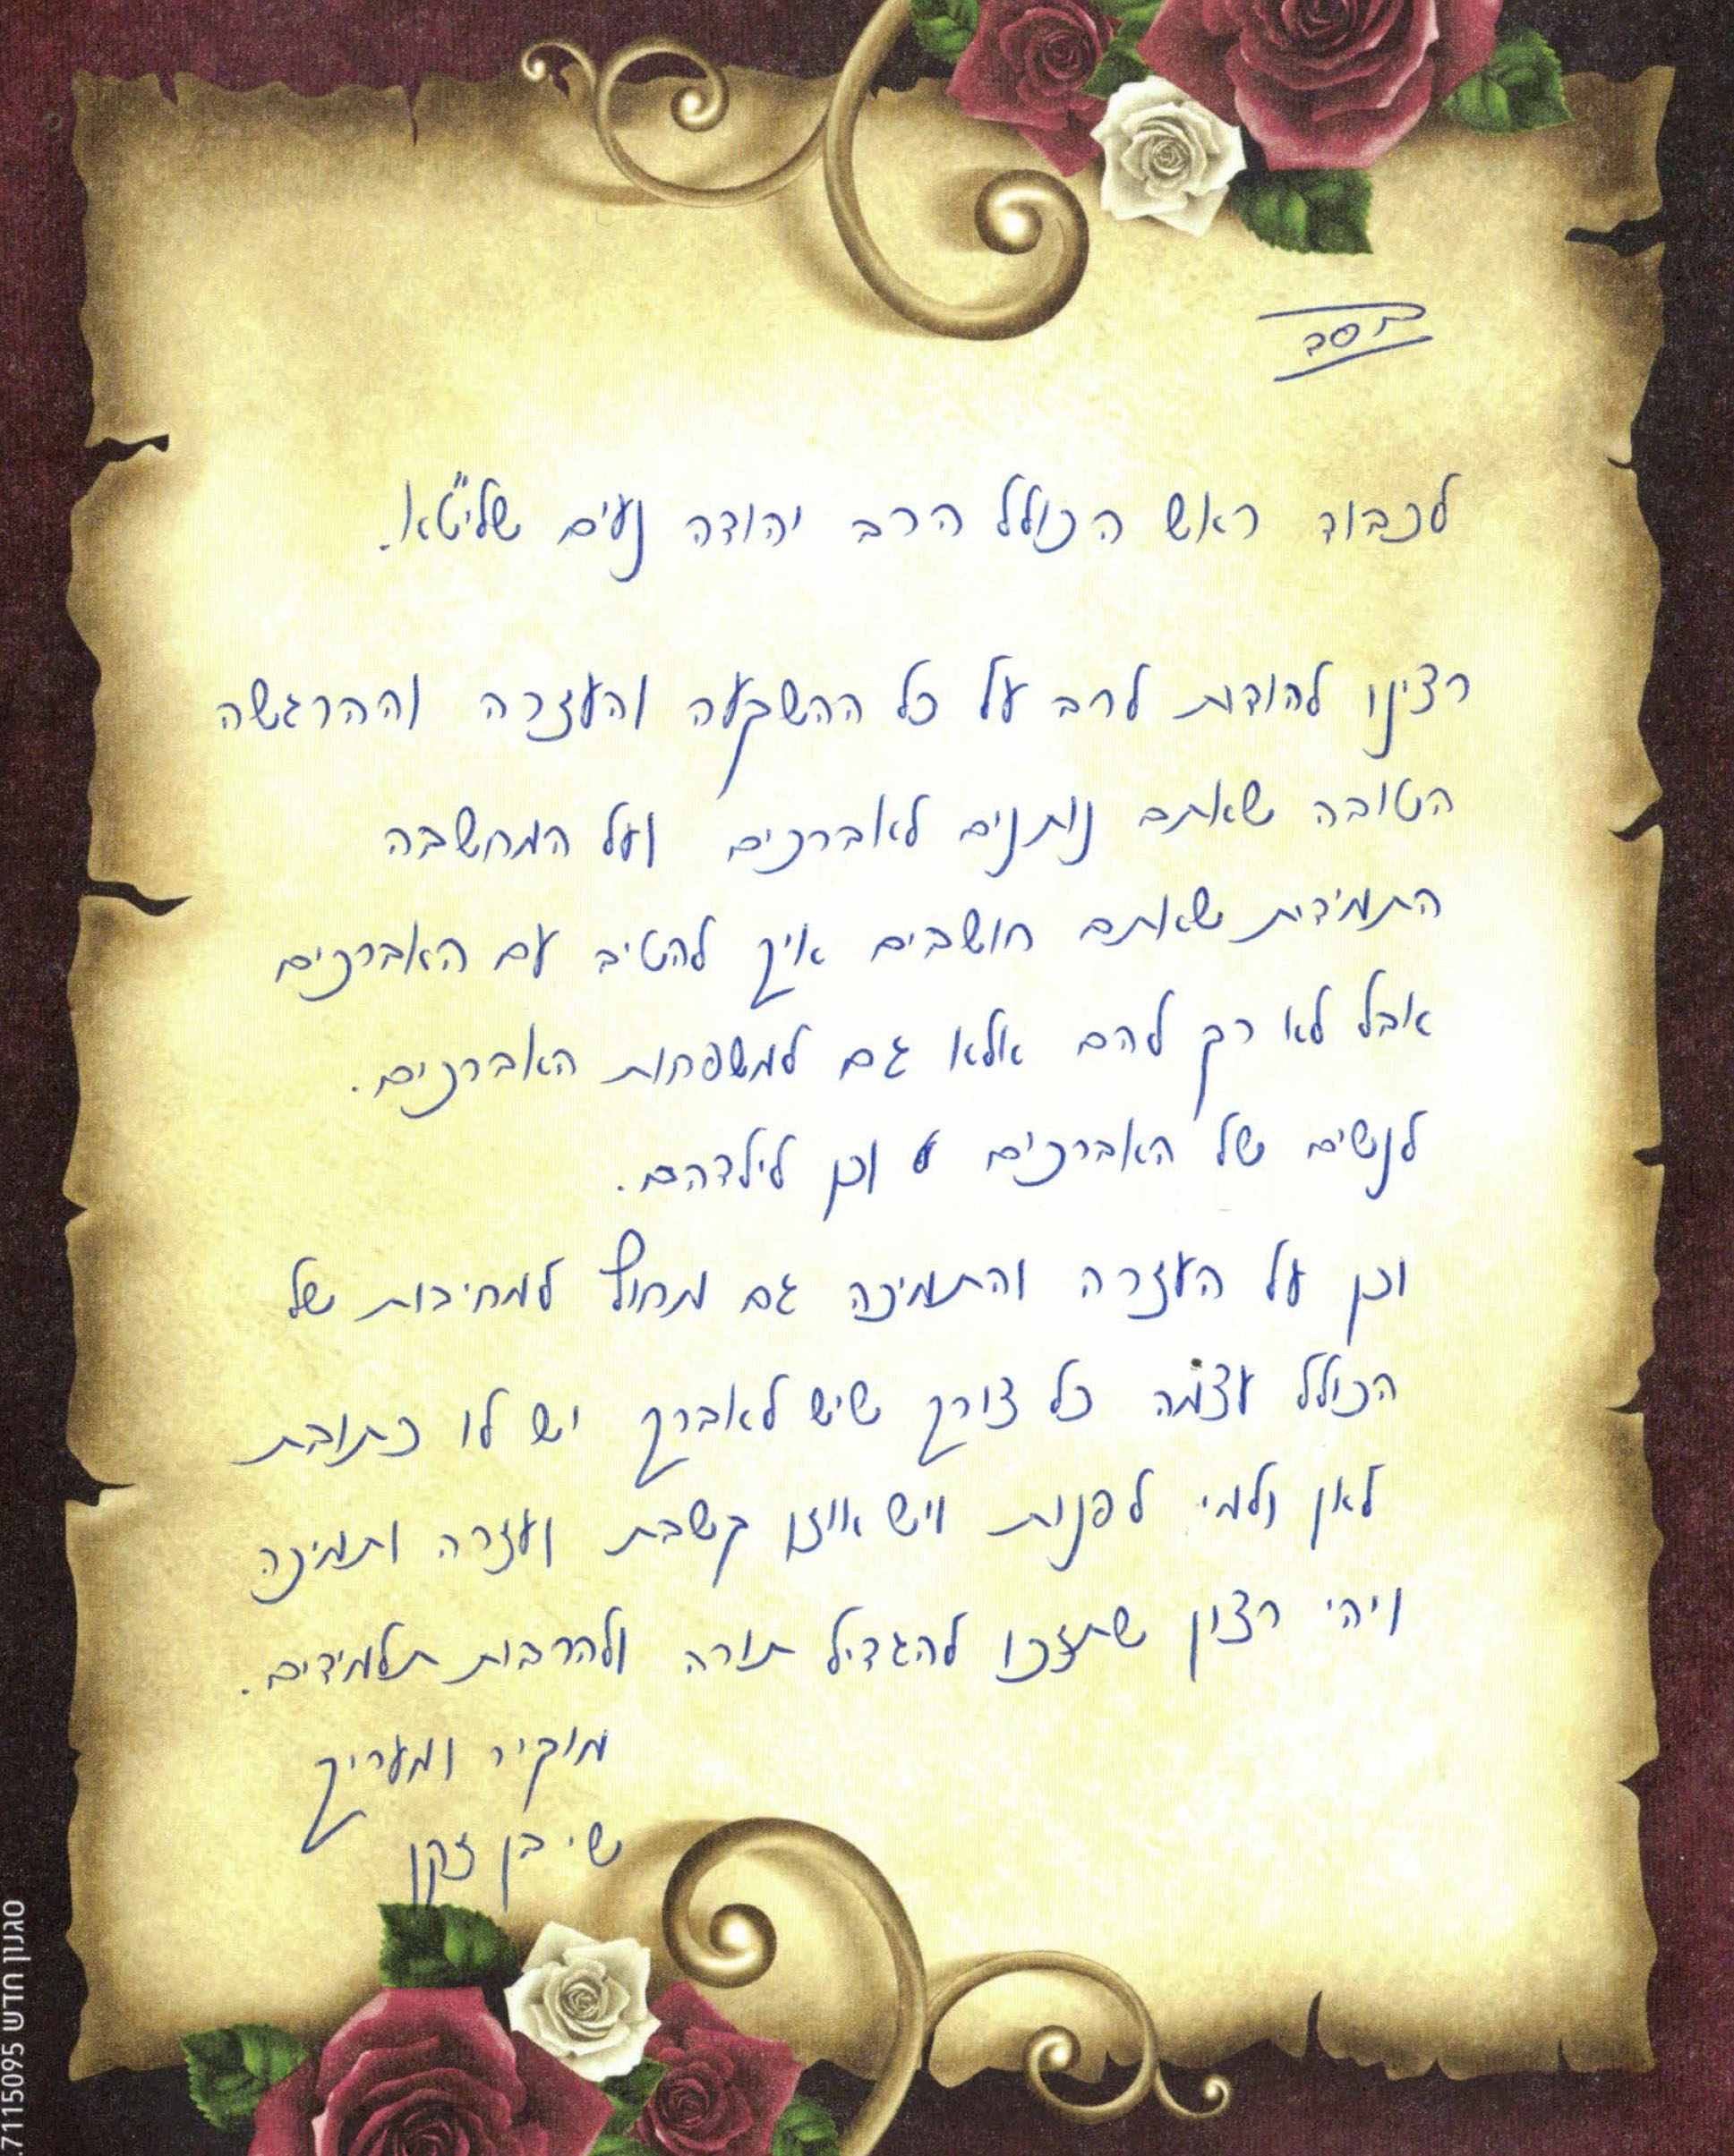 בסד
לכבוד ראש הכולל הרב יהודה נעים שליט"א.
רצינו להודות לרב על כל ההשקעה והעזרה וההרגשה
הטובה שאתם נותנים לאברכים ועל המחשבה
התמידית שאתם חושבים איך להטיב עם האברכים
אבל לא רק להם אלא גם למשפחות האברכים.
לנשים של האברכים וכן לילדהם.
וכן על העזרה והתמיכה גם מחוץ למחיבות של
הכולל עצמה כל צורך שיש לאברך יש לו כתובת
לאן ולמי לפנות ויש אוזן קשבת ועזרה ותמיכה
ויהי רצון שתזכו להגדיל תורה ולהרבות תלמידים.
מוקיר ומעריך
שי בן זקן
סגנון חדש 7115095